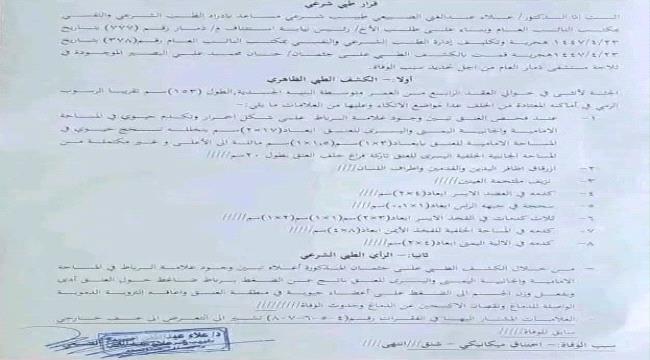 قرار طبي شرعي
أثبت أنا الدكتور/ علاء عبدالغني الصبيحي طبيب شرعي مساعد بإدارة الطب الشرعي والفني
بمكتب النائب العام وبناء على طلب الأخ/ رئيس نيابة استئناف م/ ذمار رقم (٧٧٧) بتاريخ
١٤٤٧/٤/٢٣ هجرية وتكليف إدارة الطب الشرعي والفني بمكتب النائب العام رقم (٣٧٨) بتاريخ
١٤٤٧/٤/٢٣ هجرية قمت بالكشف الطبي على جثمان/ حنان محمد علي السمير الموجودة في
ثلاجة مستشفى ذمار العام من اجل تحديد سبب الوفاة.
أولاً:- الكشف الطبي الظاهري
الجثة لأنثى في حوالي العقد الرابع من العمر متوسطة البنية الجسدية الطول (١٥٣)سم تقريبا الرسوب
الرمي في أماكنه المعتادة من الخلف عدا مواضع الاتكاء وعليها من العلامات ما يلي:-
١- عند فحص العنق تبين وجود علامة الرباط على شكل احمرار وتكدم حيوي في المساحة
الامامية والجانبية اليمنى واليسرى للعنق ابعاد(١٧×٢)سم يتخلله تسحج حيوي في
المساحة الامامية للعنق بابعاد(٣×١)سم (١,٥×١)سم مائلة الى الأعلى و غير مكتملة من
المساحة الجانبية الخلفية اليسرى للعنق تاركة فراغ خلف العنق بطول ٢٠سم/////
٢- ازرقاق اظافر اليدين والقدمين واطراف اللسان/////
٣- نزيف ملتحمة العينين/////
٤- كدمة في العضد الايسر ابعاد(٤×٢)سم/////
٥- سحجة في جبهة الراس ابعاد(١×٠,١)سم/////
٦- ثلاث كدمات في الفخذ الايسر ابعاد(٣×٢)سم(١×١)سم(٢×١)سم/////
٧- كدمة في المساحة الخلفية للفخذ الأيمن ابعاد(٨×٤)سم/////
٨- كدمة في الالية اليمين ابعاد(٤×٢)سم/////
ثانيا:- الرأي الطبي الشرعي
- من خلال الكشف الطبي على جثمان المذكورة أعلاه تبين وجود علامة الرباط في المساحة
الامامية والجانبية اليمنى واليسرى للعنق ناتج عن الضغط برباط ضاغط حول العنق أدى
وبفعل وزن الجسم الى الضغط على أعضاء حيوية في منطقة العنق واعاقة التروية الدموية
الواصلة للدماغ ونقصان الاكسجين عن الدماغ وحدوث الوفاة/////
- العلامات المشار اليها في الفقرات رقم(٤-٥-٦-٧-٨) تشير الى التعرض الى عنف خارجي
سابق للوفاة/////
سبب الوفاة:- اختناق ميكانيكي - شنق///انتهى////
د/ علاء عبد